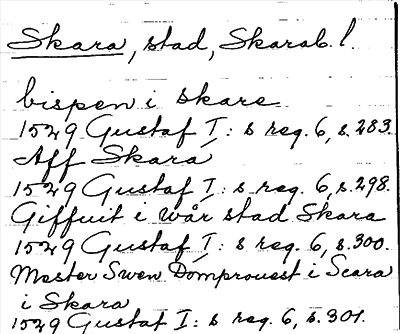 Skara, stad, Skarab. l.
bispen i skare
1529 Gustaf I: s reg. 6, s. 283.
Aff Skara
1529 Gustaf I: s reg. 6, s. 298.
Giffuit i wår stad Skara
1529 Gustaf I: s reg. 6, s. 300.
Mester Swen Domprouest i Scara
i Skara
1529 Gustaf I: s reg. 6, s. 301.